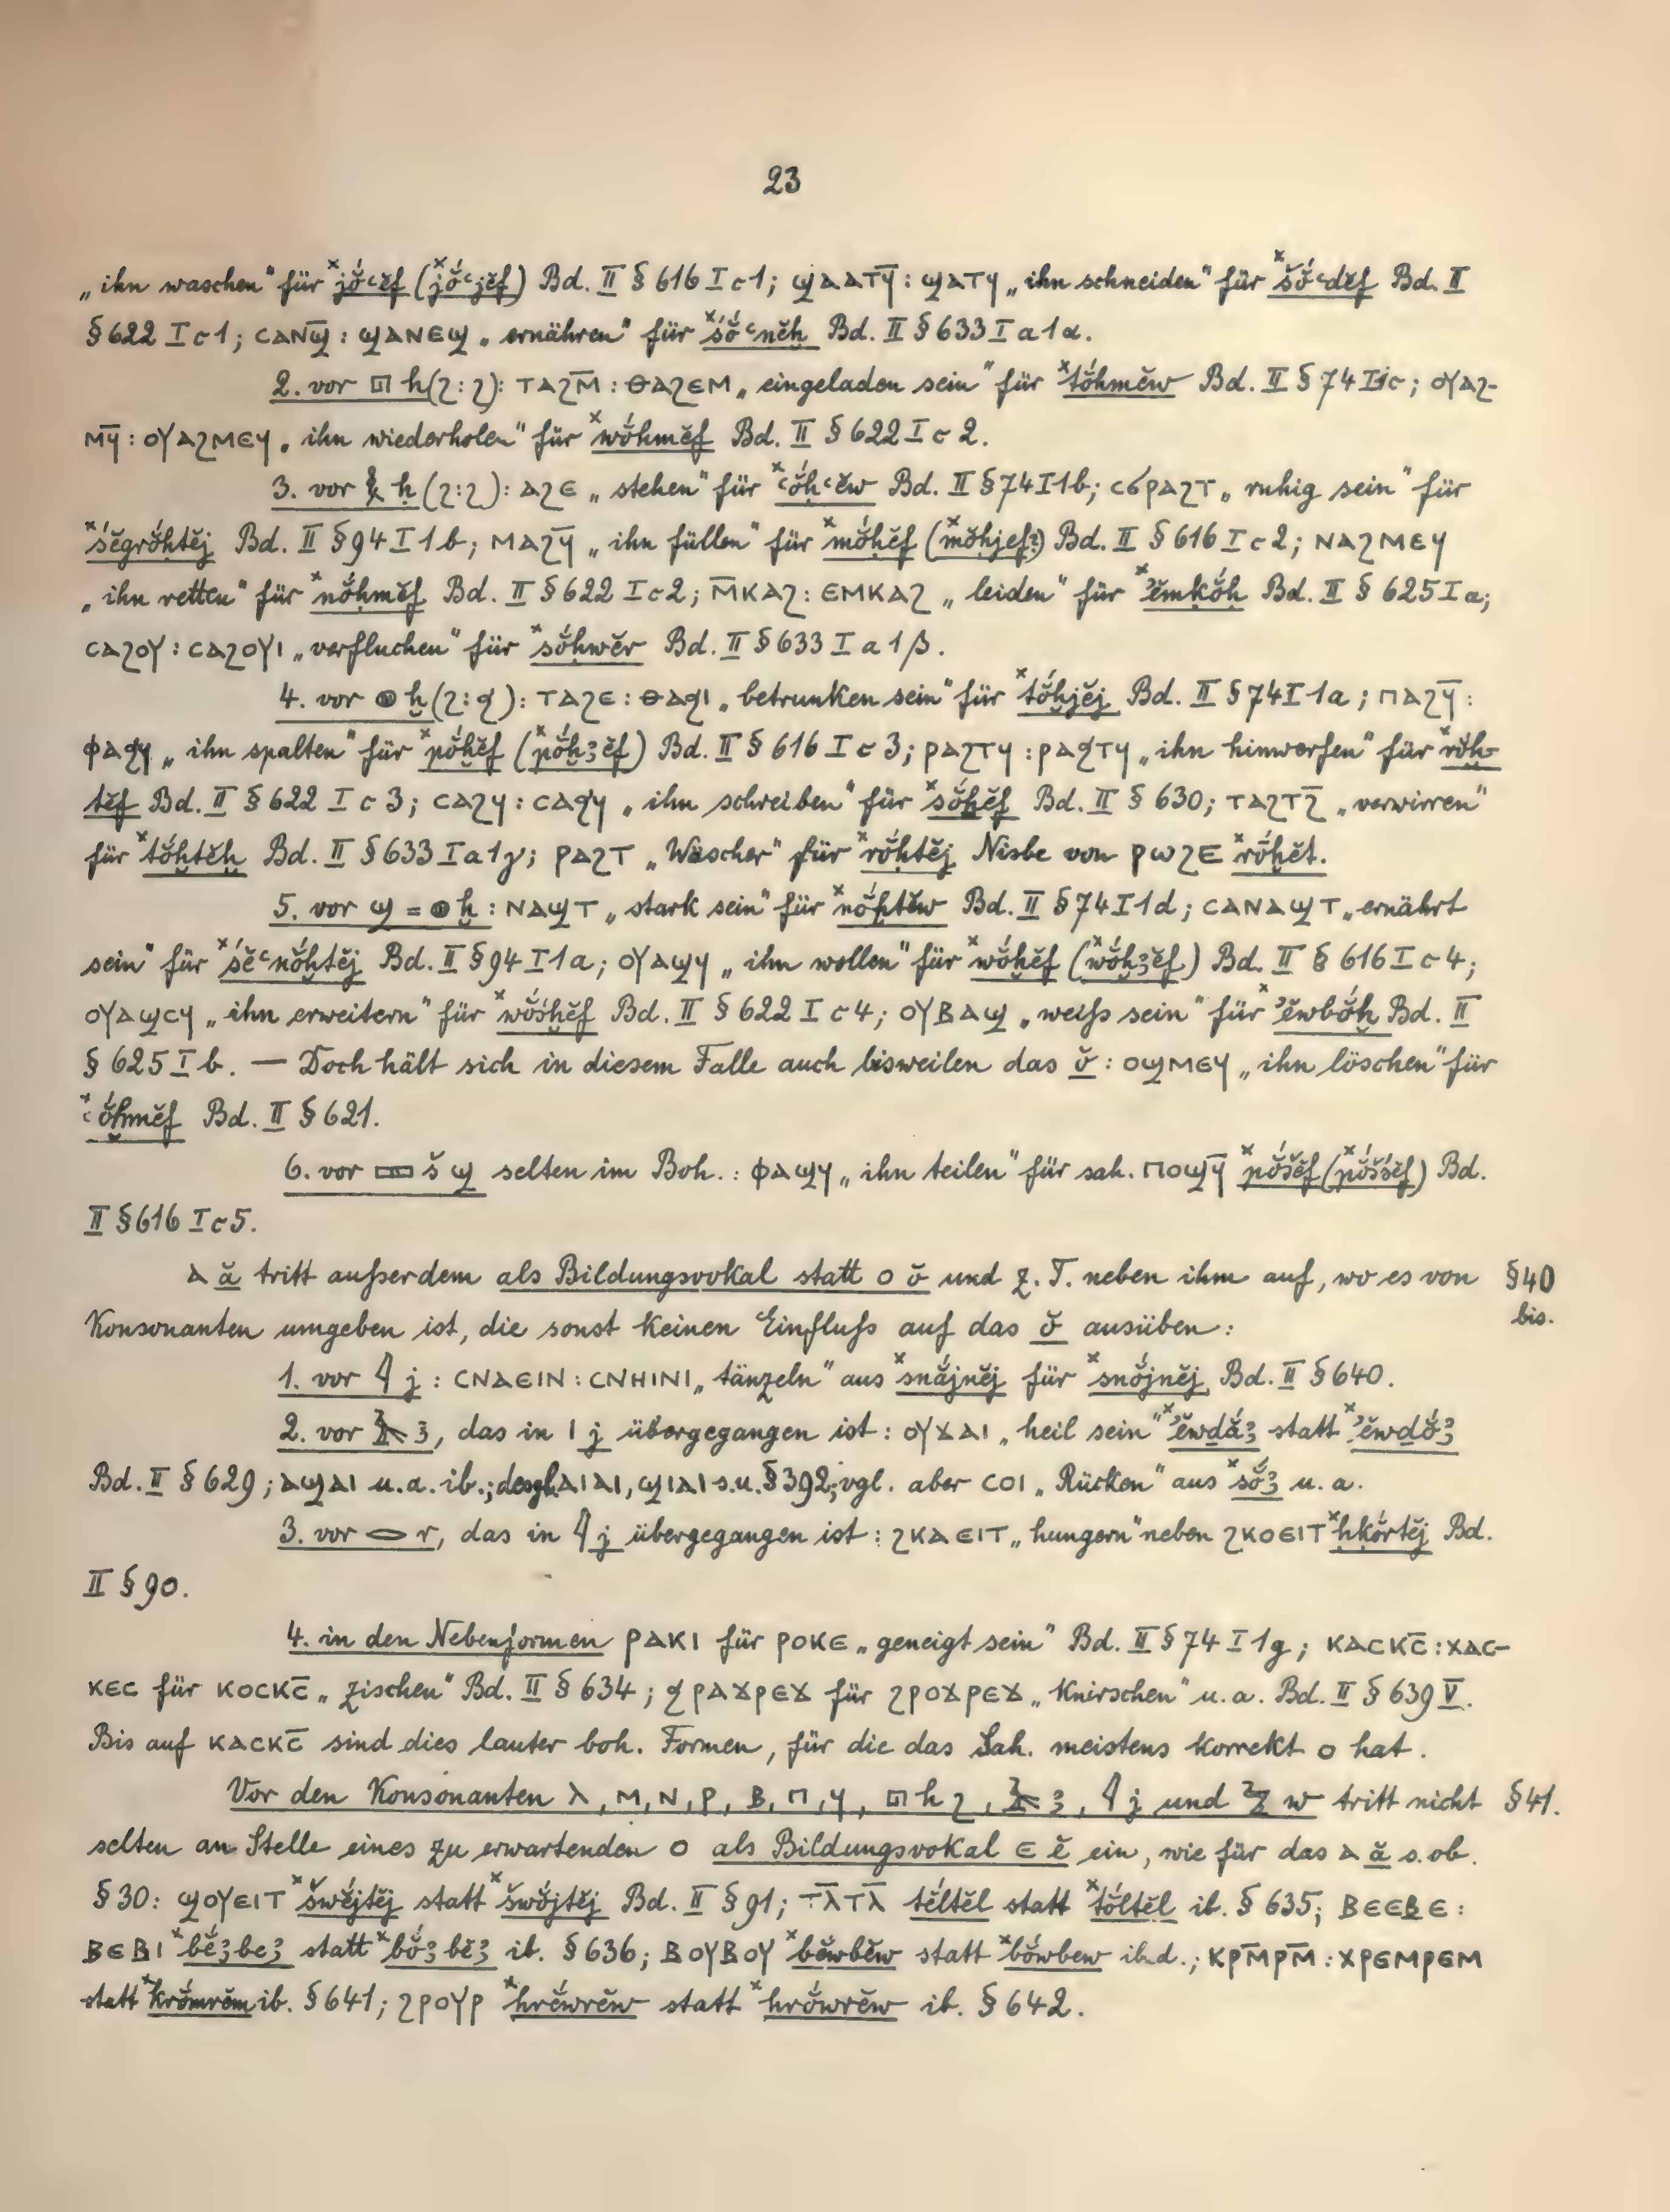 23
„ihn waschen“ für ˣjŏ́ꜥĕf (ˣjŏ́ꜥjĕf) Bd. II § 616 I c 1; ϣⲁⲁⲧϥ̄ : ϣⲁⲧϥ „ihn schneiden“ für ˣšŏ́ꜥdĕf Bd. II
§ 622 I c 1; ⲥⲁⲛϣ̄ : ϣⲁⲛⲉϣ „ernähren“ für ˣśŏ́ꜥnĕḫ Bd. II § 633 I a 1 α.
2. vor 𓉔 h (ϩ : ϩ): ⲧⲁϩⲙ̄ : ⲑⲁϩⲉⲙ „eingeladen sein“ für ˣtŏ́hmĕw Bd. II § 74 I 1c; ⲟⲩⲁϩ-
ⲙϥ̄ : ⲟⲩⲁϩⲙⲉϥ „ihn wiederholen“ für ˣwŏ́hmĕf Bd. II § 622 I c 2.
3. vor 𓎛 ḥ (ϩ : ϩ): ⲁϩⲉ „stehen“ für ˣꜥŏ́ḥꜥĕw Bd. II § 74 I 1b; ⲥϭⲣⲁϩⲧ „ruhig sein“ für
ˣśĕgrŏ́ḥtĕj Bd. II § 94 I 1b; ⲙⲁϩϥ̄ „ihn füllen“ für ˣmŏ́ḥĕf (ˣmŏ́ḥjef?) Bd. II § 616 I c 2; ⲛⲁϩⲙⲉϥ
„ihn retten“ für ˣnŏ́ḥmĕf Bd. II § 622 I c 2; ⲙ̄ⲕⲁϩ : ⲉⲙⲕⲁϩ „leiden“ für ˣʾĕmḳŏ́ḥ Bd. II § 625 I a;
ⲥⲁϩⲟⲩ : ⲥⲁϩⲟⲩⲓ „verfluchen“ für ˣsŏ́ḥwĕr Bd. II § 633 I a 1 β.
4. vor 𓐍 ḫ (ϩ : ϧ): ⲧⲁϩⲉ : ⲑⲁϧⲓ „betrunken sein“ für ˣtŏ́ḫjĕj Bd. II § 74 I 1a; ⲡⲁϩϥ̄ :
ⲫⲁϧϥ „ihn spalten“ für ˣpŏ́ḫĕf (ˣpŏ́ḫꜣĕf) Bd. II § 616 I c 3; ⲣⲁϩⲧϥ : ⲣⲁϧⲧϥ „ihn hinwerfen“ für ˣrŏ́ḫ-
tĕf Bd. II § 622 I c 3; ⲥⲁϩϥ : ⲥⲁϧϥ „ihn schreiben“ für ˣsŏ́ḫĕf Bd. II § 630; ⲧⲁϩⲧϩ̄ „verwirren“
für ˣtŏ́ḫtĕḫ Bd. II § 633 I a 1 γ; ⲣⲁϩⲧ „Wäscher“ für ˣrŏ́ḫtĕj Nisbe von ⲣⲱϩⲉ ˣrŏ́ḫĕt.
5. vor ϣ = 𓐍 ḫ : ⲛⲁϣⲧ „stark sein“ für ˣnŏ́ḫtĕw Bd. II § 74 I 1d; ⲥⲁⲛⲁϣⲧ „ernährt
sein“ für ˣśĕꜥnŏ́ḫtĕj Bd. II § 94 I 1a; ⲟⲩⲁϣϥ „ihn wollen“ für ˣwŏ́ḫĕf (ˣwŏ́ḫꜣĕf) Bd. II § 616 I c 4;
ⲟⲩⲁϣⲥϥ „ihn erweitern“ für ˣwŏ́śḫĕf Bd. II § 622 I c 4; ⲟⲩⲃⲁϣ „weiß sein“ für ˣʾĕwbŏ́ḫ Bd. II
§ 625 I b. — Doch hält sich in diesem Falle auch bisweilen das ŏ : ⲟϣⲙⲉϥ „ihn löschen“ für
ˣꜥŏ́ḫmĕf Bd. II § 621.
6. vor 𓈙 š ϣ selten im Boh. : ⲫⲁϣϥ „ihn teilen“ für sah. ⲡⲟϣϥ̄ ˣpŏ́šĕf (ˣpŏ́śšĕf) Bd.
II § 616 I c 5.
ⲁ ă tritt außerdem als Bildungsvokal statt ⲟ ŏ und z. T. neben ihm auf, wo es von § 40
Konsonanten umgeben ist, die sonst keinen Einfluß auf das ŏ ausüben: bis.
1. vor 𓇋 j : ⲥⲛⲁⲉⲓⲛ : ⲥⲛⲏⲓⲛⲓ „tänzeln“ aus ˣsnắjnĕj für ˣsnŏ́jnĕj Bd. II § 640.
2. vor 𓄿 ꜣ, das in ⲓ j übergegangen ist : ⲟⲩϫⲁⲓ „heil sein“ ˣʾĕwḏắꜣ statt ˣʾĕwḏŏ́ꜣ
Bd. II § 629; ⲁϣⲁⲓ u. a. ib.; desgl. ⲁⲓⲁⲓ, ϣⲓⲁⲓ s. u. § 392; vgl. aber ⲥⲟⲓ „Rücken“ aus ˣsŏ́ꜣ u. a.
3. vor 𓂋 r, das in 𓇋 j übergegangen ist : ϩⲕⲁⲉⲓⲧ „hungern“ neben ϩⲕⲟⲉⲓⲧ ˣḥḳŏ́rtĕj Bd.
II § 90.
4. in den Nebenformen ⲣⲁⲕⲓ für ⲣⲟⲕⲉ „geneigt sein“ Bd. II § 74 I 1g; ⲕⲁⲥⲕⲥ̄ : ⲭⲁⲥ-
ⲕⲉⲥ für ⲕⲟⲥⲕⲥ̄ „zischen“ Bd. II § 634; ϧⲣⲁϫⲣⲉϫ für ϩⲣⲟϫⲣⲉϫ „Knirschen“ u. a. Bd. II § 639 V.
Bis auf ⲕⲁⲥⲕⲥ̄ sind dies lauter boh. Formen, für die das Sah. meistens korrekt ⲟ hat.
Vor den Konsonanten ⲗ, ⲙ, ⲛ, ⲣ, ⲃ, ⲡ, ϥ, 𓉔 h ϩ, 𓄿 ꜣ, 𓇋 j und 𓅱 w tritt nicht § 41.
selten an Stelle eines zu erwartenden ⲟ als Bildungsvokal ⲉ ĕ ein, wie für das ⲁ ă s. ob.
§ 30: ϣⲟⲩⲉⲓⲧ ˣšwĕ́jtĕj statt ˣšwŏ́jtĕj Bd. II § 91; ⲧⲗ̄ⲧⲗ̄ tĕ́ltĕl statt ˣtŏ́ltĕl ib. § 635; ⲃⲉⲉⲃⲉ :
ⲃⲉⲃⲓ ˣbĕ́ꜣbeꜣ statt ˣbŏ́ꜣbĕꜣ ib. § 636; ⲃⲟⲩⲃⲟⲩ ˣbĕ́wbĕw statt ˣbŏ́wbew ibid.; ⲕⲣⲙ̄ⲣⲙ̄ : ⲭⲣⲉⲙⲣⲉⲙ
statt ˣkrŏ́mrĕm ib. § 641; ϩⲣⲟⲩⲣ ˣhrĕ́wrĕw statt ˣhrŏ́wrĕw ib. § 642.